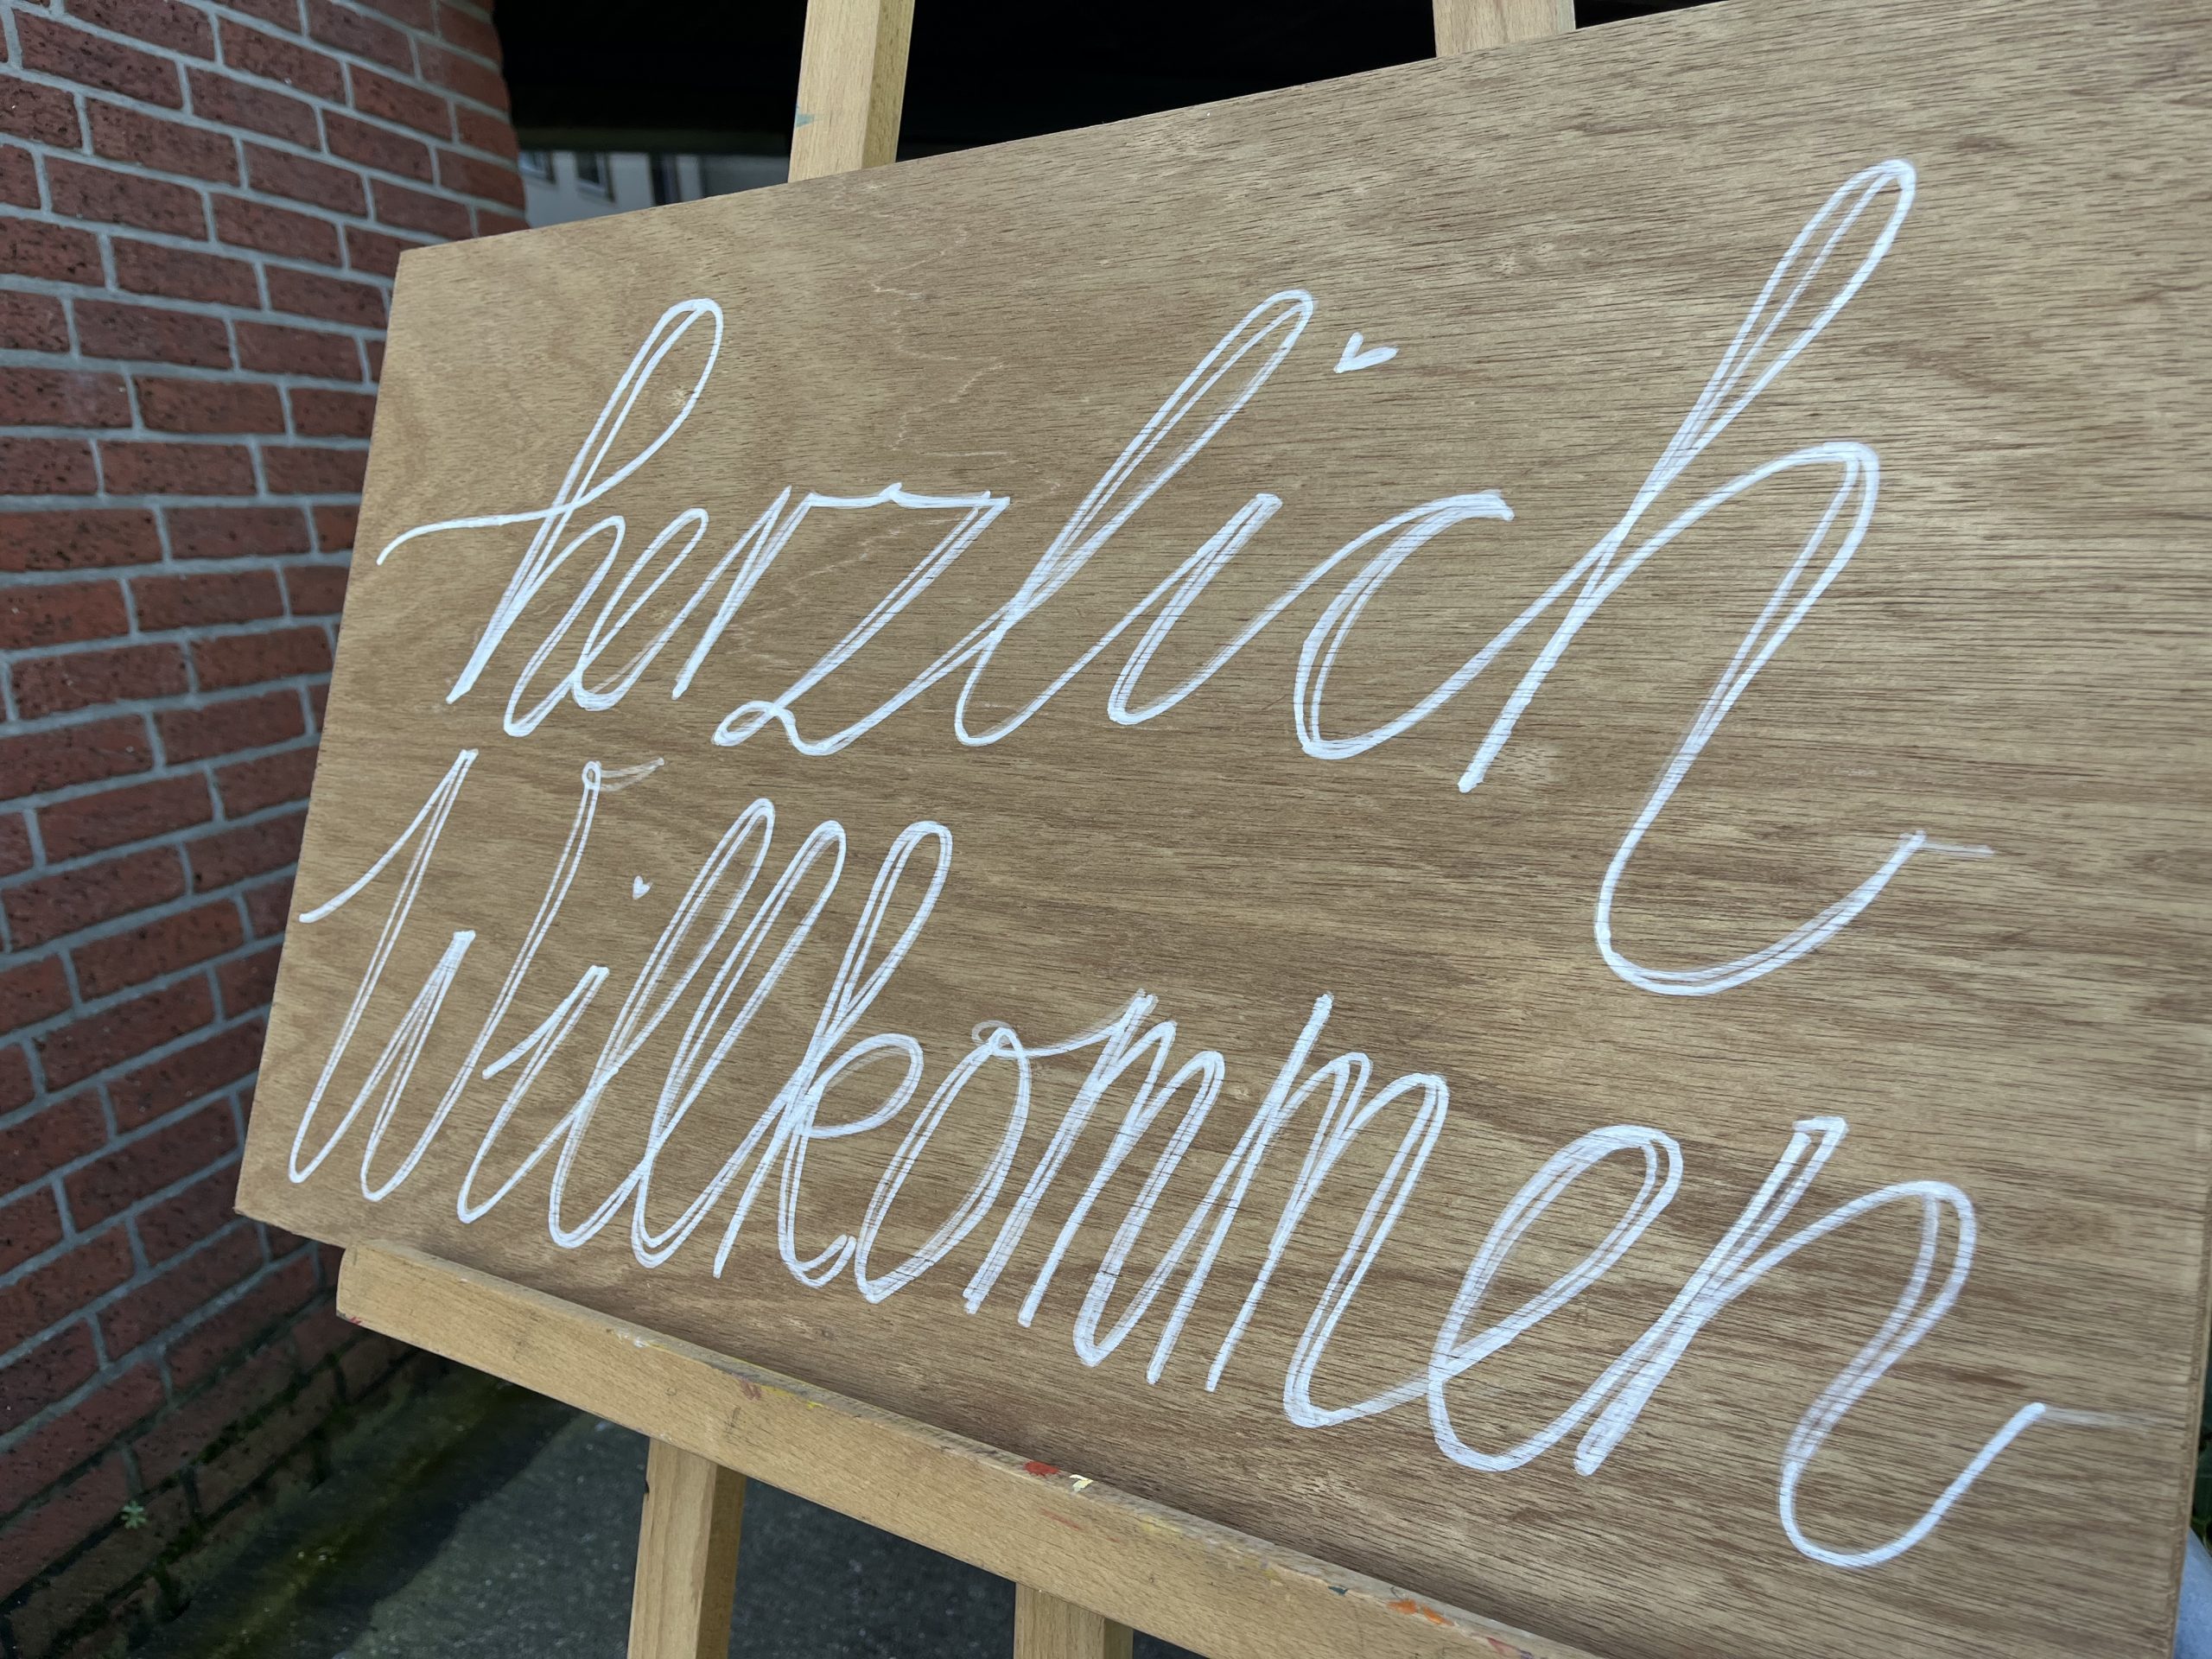 herzlich
Willkommen